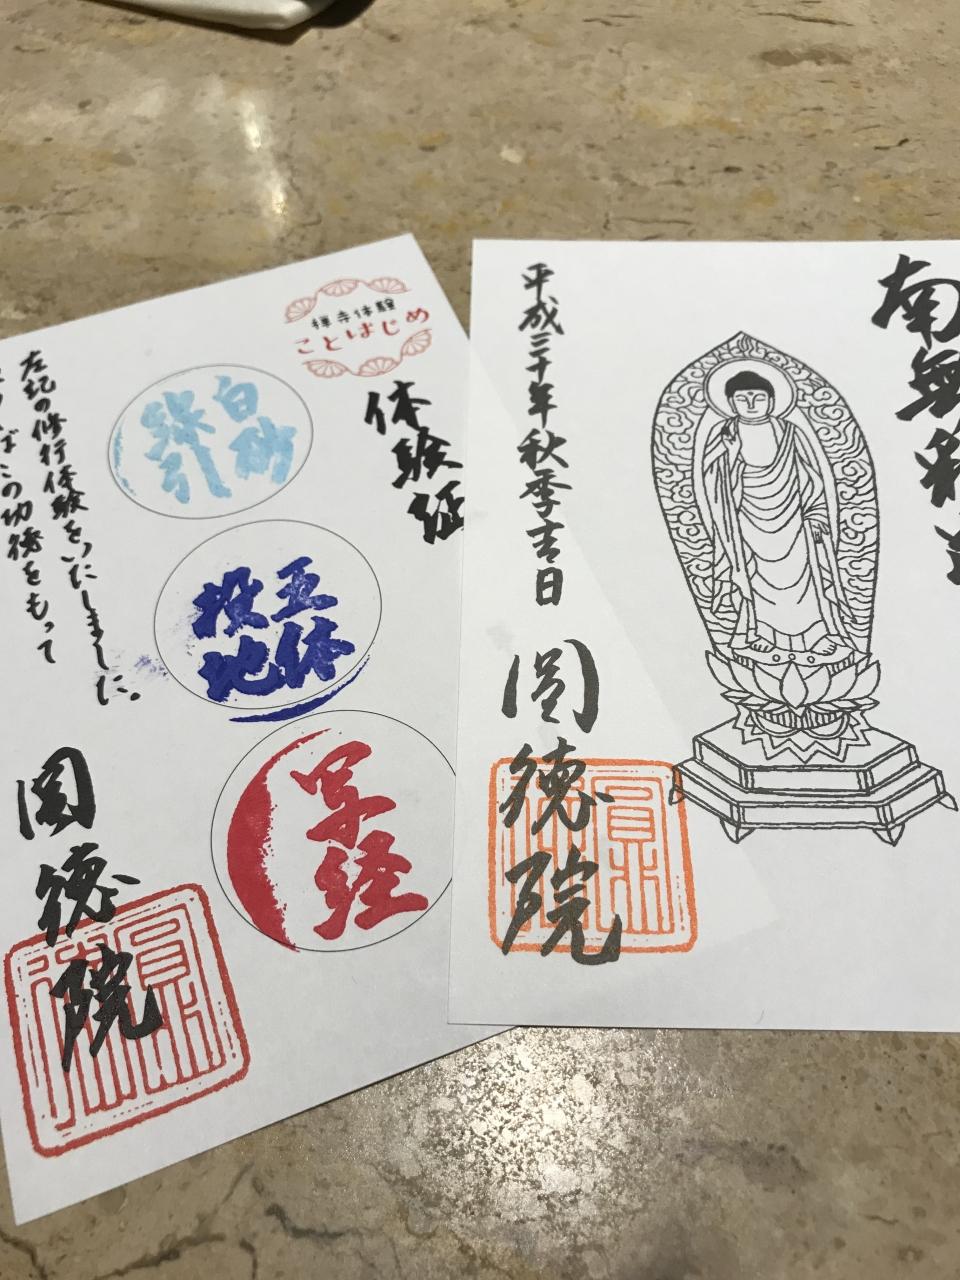 南無釈迦
平成三十年秋季吉日
圓徳院
禅寺体験
ことはじめ
体験証
白砂
線引
五体
投地
写経
左記の修行体験をいたしました。
この功徳をもって
圓徳院